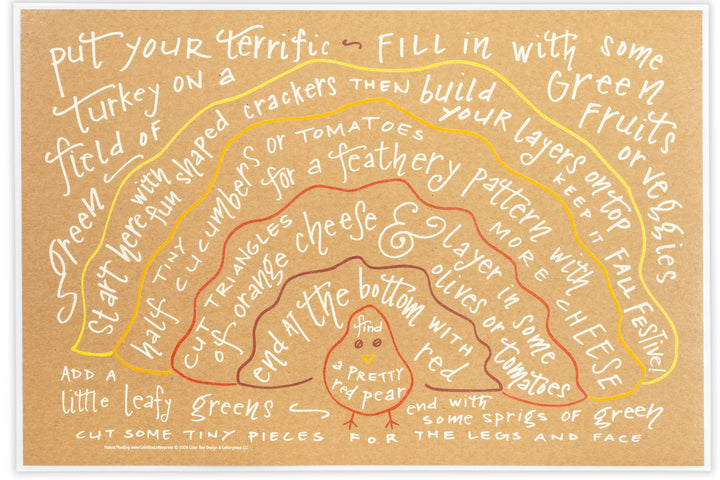 put YOUR terrific ~ FILL in with some
turkey ON a Green
field of Fruits
green or veggies
Start here with crackers THEN build YOUR layers on top
fun shaped KEEP IT FALL FESTIVE!
half TINY CUCUMBERS OR TOMATOES
for a feathery pattern with MORE CHEESE
CUT TRIANGLES
of orange cheese & layer in some
olives or tomatoes
end AT the bottom WITH red
find
a PRETTY
red pear
ADD A
little leafy greens
end with
some sprigs OF green
CUT SOME TINY PIECES FOR THE LEGS AND FACE
Patent Pending www.ColorBoxLetterpress © 2024 Color Box Design & Letterpress LLC